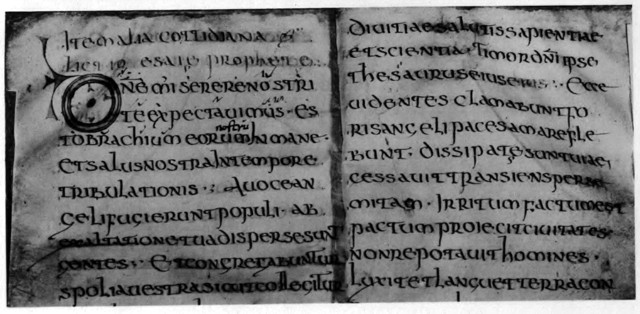 Item alia cottidiana
Lectio esaie prophete :
Dnē miserere nostri
te expectauimus · es
nostrum
to brachium eorum in mane ·
et salus nostra in tempore
tribulationis : A uoce an
geli fugierunt populi · ab
exaltatione tua disperse sunt
gentes : Et congregabuntur
spolia uestra sicut collegitur
diuitiae salutis sapientiae
et scientia · timor dn̄i ipse
thesaurus eius : Ecce
uidentes clamabunt fo
ris angeli pacis amare fle
bunt · dissipate sunt uiae
cessauit transiens per se
mitam · Irritum factum est
pactum proiecit ciuitates
non repotauit homines ·
Luxit et languet terra con